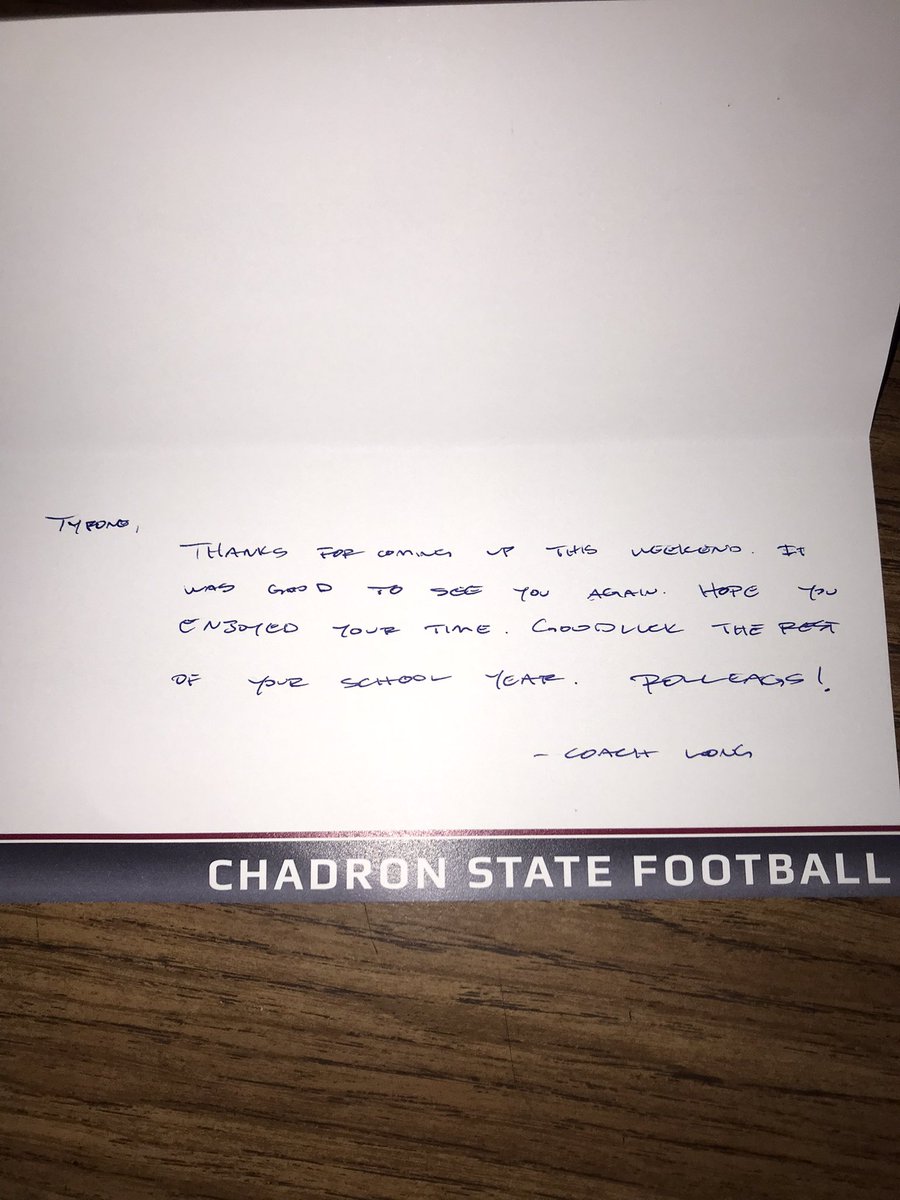 TYRONE,
THANKS FOR COMING UP THIS WEEKEND. IT
WAS GOOD TO SEE YOU AGAIN. HOPE YOU
ENJOYED YOUR TIME. GOODLUCK THE REST
OF YOUR SCHOOL YEAR. ROLLEAGS!
- COACH LONG
CHADRON STATE FOOTBALL